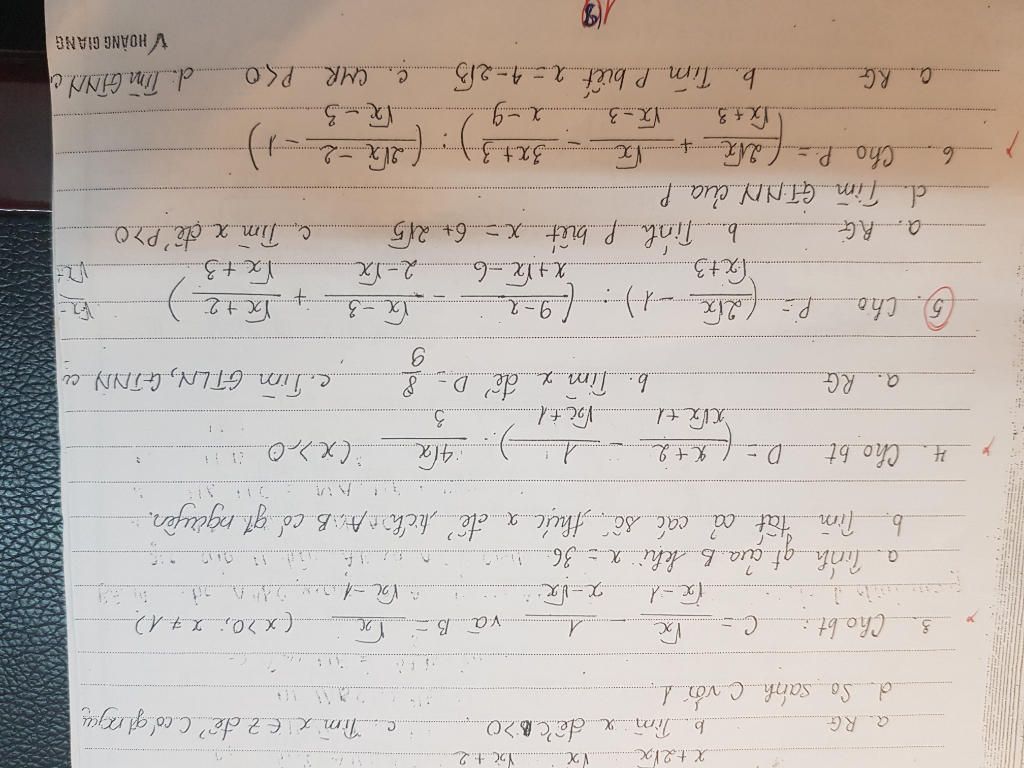 x+2√x √x √x+2
a. RG b. Tìm x để C>0 c. Tìm x ∈ Z để C có gt nguy
d. So sánh C với 1.
3. Cho bt: C = √x/(√x-1) - 1/(x-√x) và B = √x/(√x-1) (x>0; x≠1)
a. Tính gt của B khi x = 36.
b. Tìm tất cả các số thực x để tích A.B có gt nguyên.
4. Cho bt D = ((x+2)/(x√x+1) - 1/(√x+1)) . 4√x/3 (x>0
a. RG b. Tìm x để D = 8/9 c. Tìm GTLN, GTNN củ
5. Cho P = (2√x/(√x+3) - 1) : ((9-x)/(x+√x-6) - (√x-3)/(2-√x) + (√x+2)/(√x+3))
a. RG b. Tính P biết x = 6+2√5 c. Tìm x để P>0
d. Tìm GTNN của P
6. Cho P = (2√x/(√x+3) + √x/(√x-3) - (3x+3)/(x-9)) : ((2√x-2)/(√x-3) - 1)
a. RG b. Tìm P biết x = 4-2√3 c. CMR P<0 d. Tìm GTNN c
HOÀNG GIANG